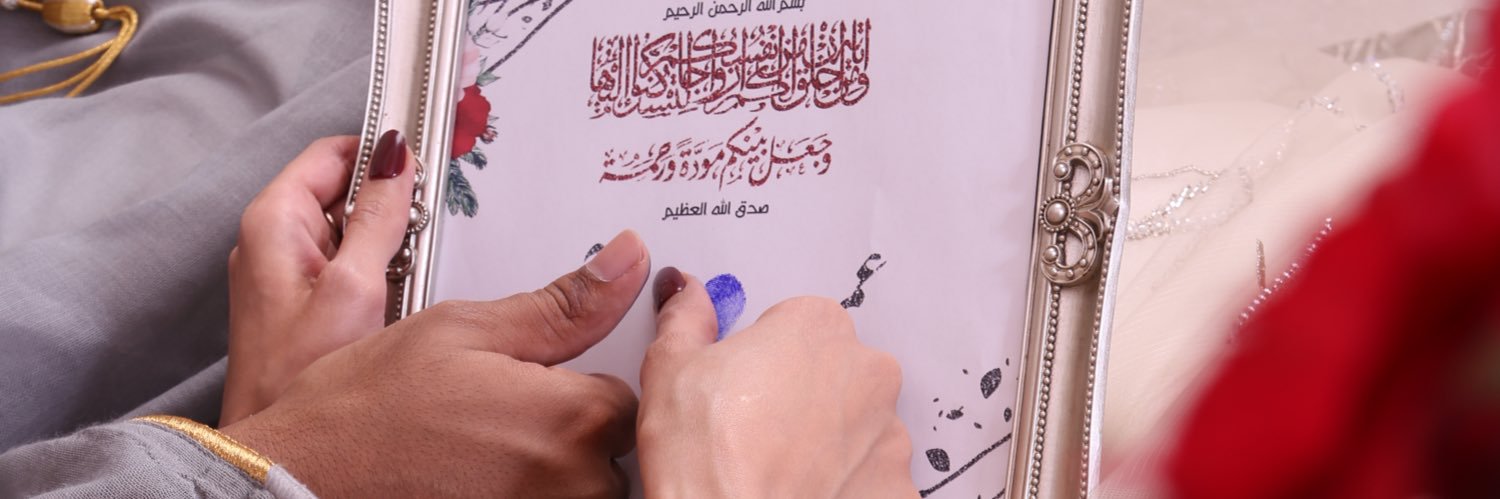 بسم الله الرحمن الرحيم
ومن آياته أن خلق لكم من أنفسكم أزواجا لتسكنوا إليها
وجعل بينكم مودة ورحمة
صدق الله العظيم